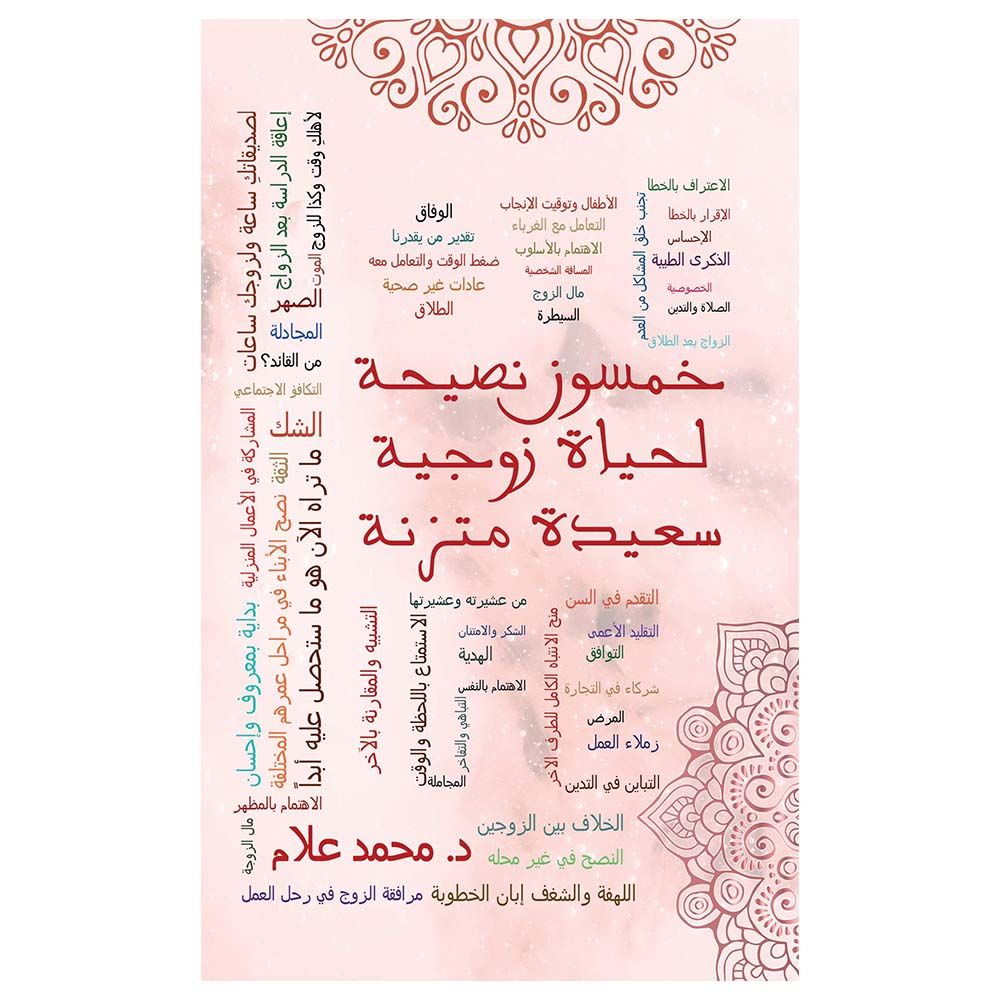 الاعتراف بالخطأ
الإقرار بالخطأ
الإحساس
الذكرى الطيبة
الخصوصية
الصلاة والتدين
الزواج بعد الطلاق
تجنب خلق المشاكل من العدم
الأطفال وتوقيت الإنجاب
التعامل مع الغرباء
الاهتمام بالأسلوب
المسافة الشخصية
مال الزوج
السيطرة
الوفاق
تقدير من يقدرنا
ضغط الوقت والتعامل معه
عادات غير صحية
الطلاق
لأهلك وقت وكذا للزوج
الموت
إعاقة الدراسة بعد الزواج
لصديقاتكِ ساعة ولزوجك ساعات
الصهر
المجادلة
من القائد؟
التكافؤ الاجتماعي
خمسون نصيحة
لحياة زوجية
سعيدة متزنة
الشك
الثقة
ما تراه الآن هو ما ستحصل عليه أبداً
نصح الأبناء في مراحل عمرهم المختلفة
المشاركة في الأعمال المنزلية
بداية بمعروف وإحسان
الاهتمام بالمظهر
مال الزوجة
التقدم في السن
التقليد الأعمى
التوافق
شركاء في التجارة
المرض
زملاء العمل
التباين في التدين
منح الانتباه الكامل للطرف الآخر
من عشيرته وعشيرتها
الشكر والامتنان
الهدية
الاهتمام بالنفس
التباهي والتفاخر
المجاملة
الاستمتاع باللحظة والوقت
التشبيه والمقارنة بالآخر
الخلاف بين الزوجين
النصح في غير محله
د. محمد علام
اللهفة والشغف إبان الخطوبة
مرافقة الزوج في رحل العمل